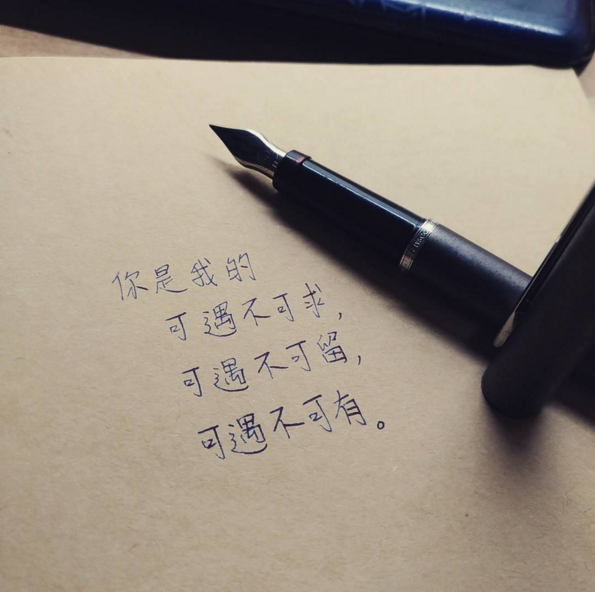 你是我的
可遇不可求,
可遇不可留,
可遇不可有。